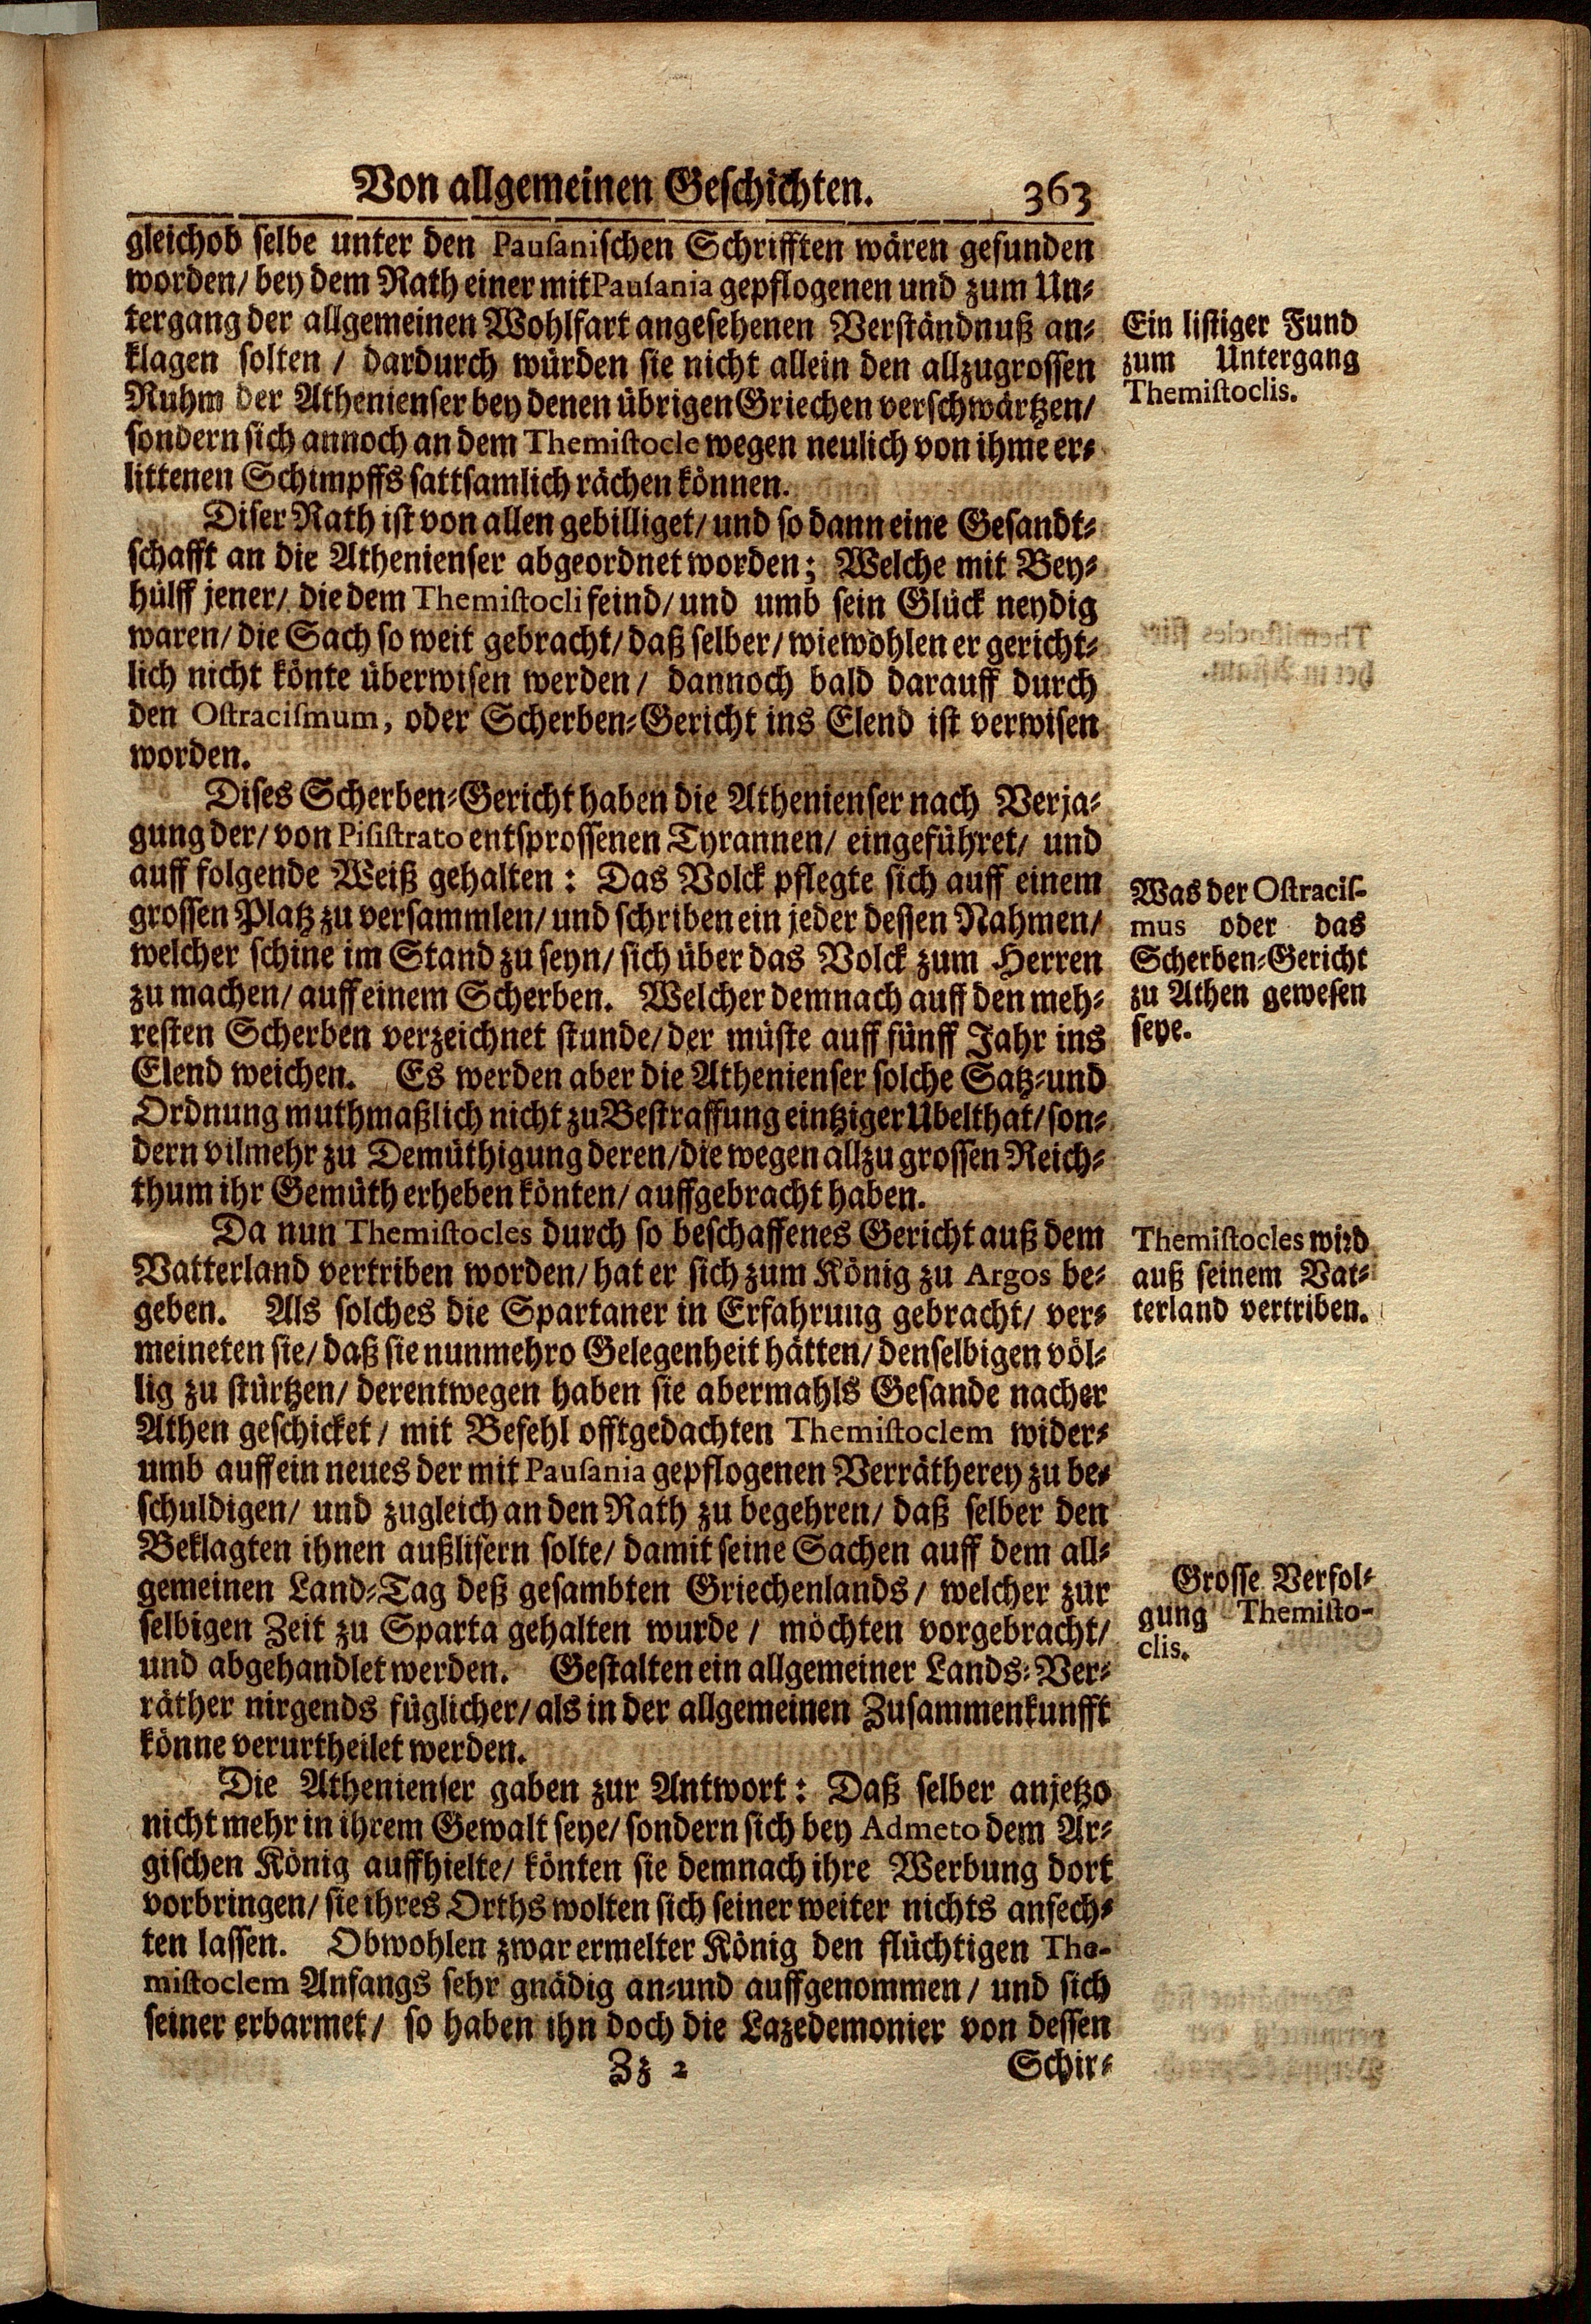 Von allgemeinen Geschichten. 363
gleichob selbe unter den Pausanischen Schrifften wären gefunden
worden/ bey dem Rath einer mit Pausania gepflogenen und zum Un-
tergang der allgemeinen Wohlfart angesehenen Verständnuß an-
klagen solten / dardurch würden sie nicht allein den allzugrossen
Ruhm der Athenienser bey denen übrigen Griechen verschwärtzen/
sondern sich annoch an dem Themistocle wegen neulich von ihme er-
littenen Schimpffs sattsamlich rächen können.
Ein listiger Fund
zum Untergang
Themistoclis.
Diser Rath ist von allen gebilliget/ und so dann eine Gesandt-
schafft an die Athenienser abgeordnet worden; Welche mit Bey-
hülff jener/ die dem Themistocli feind/ und umb sein Glück neydig
waren/ die Sach so weit gebracht/ daß selber/ wiewohlen er gericht-
lich nicht könte überwisen werden/ dannoch bald darauff durch
den Ostracismum, oder Scherben-Gericht ins Elend ist verwisen
worden.
Dises Scherben-Gericht haben die Athenienser nach Verja-
gung der/ von Pisistrato entsprossenen Tyrannen/ eingeführet/ und
auff folgende Weiß gehalten: Das Volck pflegte sich auff einem
grossen Platz zu versammlen/ und schriben ein jeder dessen Nahmen/
welcher schine im Stand zu seyn/ sich über das Volck zum Herren
zu machen/ auff einem Scherben. Welcher demnach auff den meh-
resten Scherben verzeichnet stunde/ der müste auff fünff Jahr ins
Elend weichen. Es werden aber die Athenienser solche Satz-und
Ordnung muthmaßlich nicht zu Bestraffung eintziger Ubelthat/ son-
dern vilmehr zu Demüthigung deren/ die wegen allzu grossen Reich-
thum ihr Gemüth erheben könten/ auffgebracht haben.
Was der Ostracis-
mus oder das
Scherben-Gericht
zu Athen gewesen
seye.
Da nun Themistocles durch so beschaffenes Gericht auß dem
Vatterland vertriben worden/ hat er sich zum König zu Argos be-
geben. Als solches die Spartaner in Erfahrung gebracht/ ver-
meineten sie/ daß sie nunmehro Gelegenheit hätten/ denselbigen völ-
lig zu stürtzen/ derentwegen haben sie abermahls Gesande nacher
Athen geschicket / mit Befehl offtgedachten Themistoclem wider-
umb auff ein neues der mit Pausania gepflogenen Verrätherey zu be-
schuldigen/ und zugleich an den Rath zu begehren/ daß selber den
Beklagten ihnen außlifern solte/ damit seine Sachen auff dem all-
gemeinen Land-Tag deß gesambten Griechenlands / welcher zur
selbigen Zeit zu Sparta gehalten wurde / möchten vorgebracht/
und abgehandlet werden. Gestalten ein allgemeiner Lands-Ver-
räther nirgends füglicher/ als in der allgemeinen Zusammenkunfft
könne verurtheilet werden.
Themistocles wird
auß seinem Vat-
terland vertriben.
Grosse Verfol-
gung Themisto-
clis.
Die Athenienser gaben zur Antwort: Daß selber anjetzo
nicht mehr in ihrem Gewalt seye/ sondern sich bey Admeto dem Ar-
gischen König auffhielte/ könten sie demnach ihre Werbung dort
vorbringen/ sie ihres Orths wolten sich seiner weiter nichts anfech-
ten lassen. Obwohlen zwar ermelter König den flüchtigen The-
mistoclem Anfangs sehr gnädig an-und auffgenommen / und sich
seiner erbarmet/ so haben ihn doch die Lazedemonier von dessen
Zz 2 Schir-